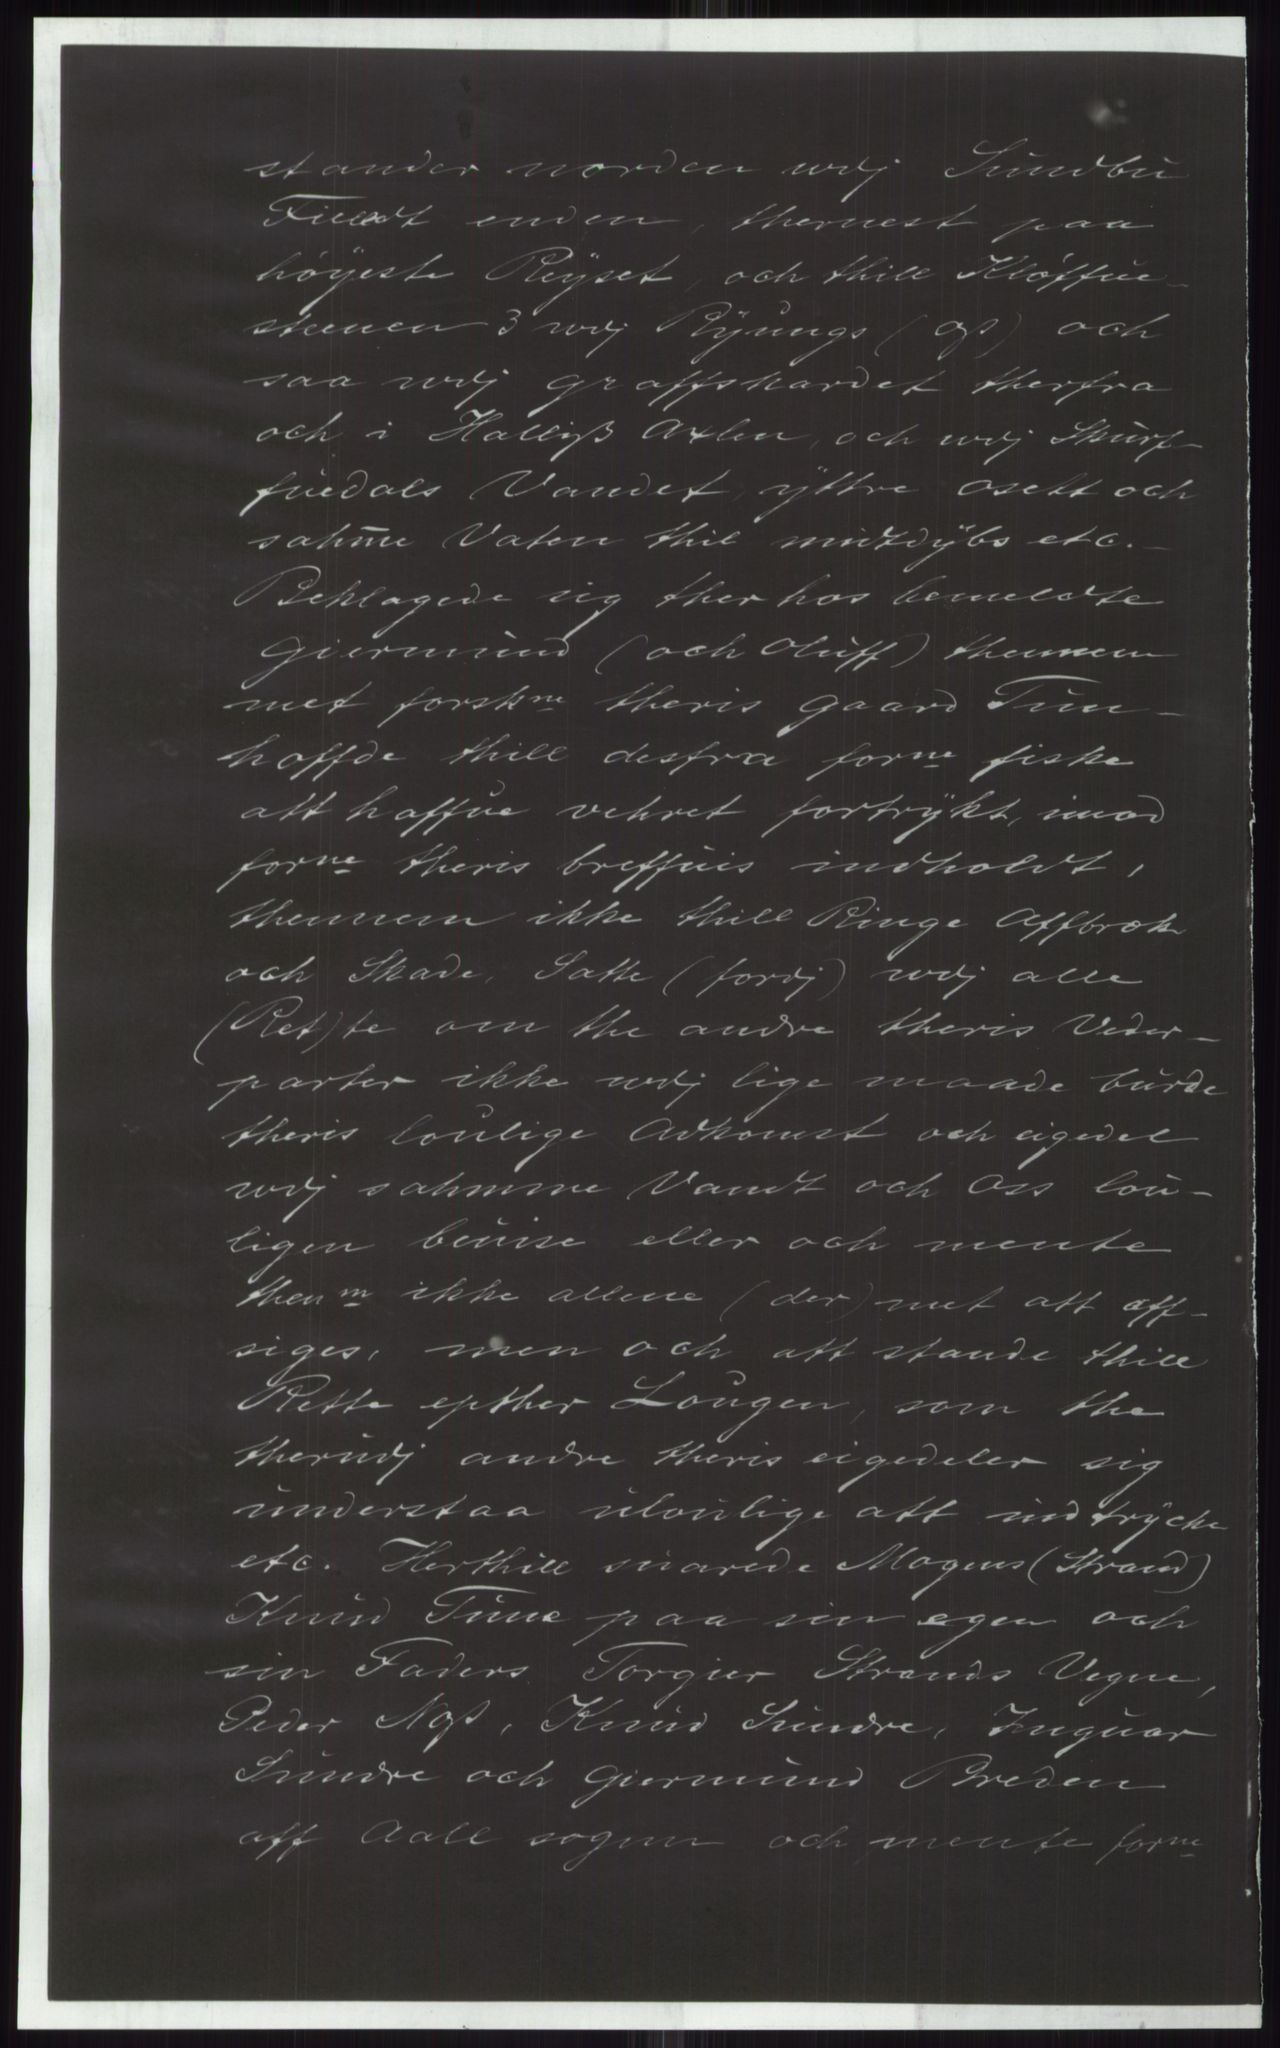 stander norden udj Sundbu
Fieldt enden, thernest paa
höÿeste Reÿset, och thill Klöffue-
steenen 3 udj Rÿungs (os) och
saa udj graffskardet therfra
och i Halliß Axlen, och udj Skurf-
fuedals Vandet, ÿttre osett och
sahme Vaten thil mitdÿbs etc.-
Beklagede sig ther hos bemeldte
Giermund (och Oluff) thennem
met forskne theris gaard Tun-
haffde thill desfra forne fiske
att haffue vehret fortrÿkt, imod
forne theris breffuis indholdt,
thennem ikke thill Ringe Affbræk
och Skade, Satte (fordj) udj alle
(Ret)te om the andre theris Veder-
parter ikke udj lige maade burde
theris loulige Adkomst och eigedel
udj sahmme Vandt och Oss lou-
ligen beuise eller och mente
thenm ikke allene (der) met att aff-
siges, men och att stande thill
Rette epther Lougen, som the
therudj andre theris eigedeler sig
understaa uloulige att indtrÿcke
etc. Herthill suarede Mogens (Strand)
Knud Tune paa sin egen och
sin Faders Torgier Strands Vegne,
Peder Næs, Knud Sundre, Inguar
Sundre och Giermund Breden
aff Aall sogen och mente forne